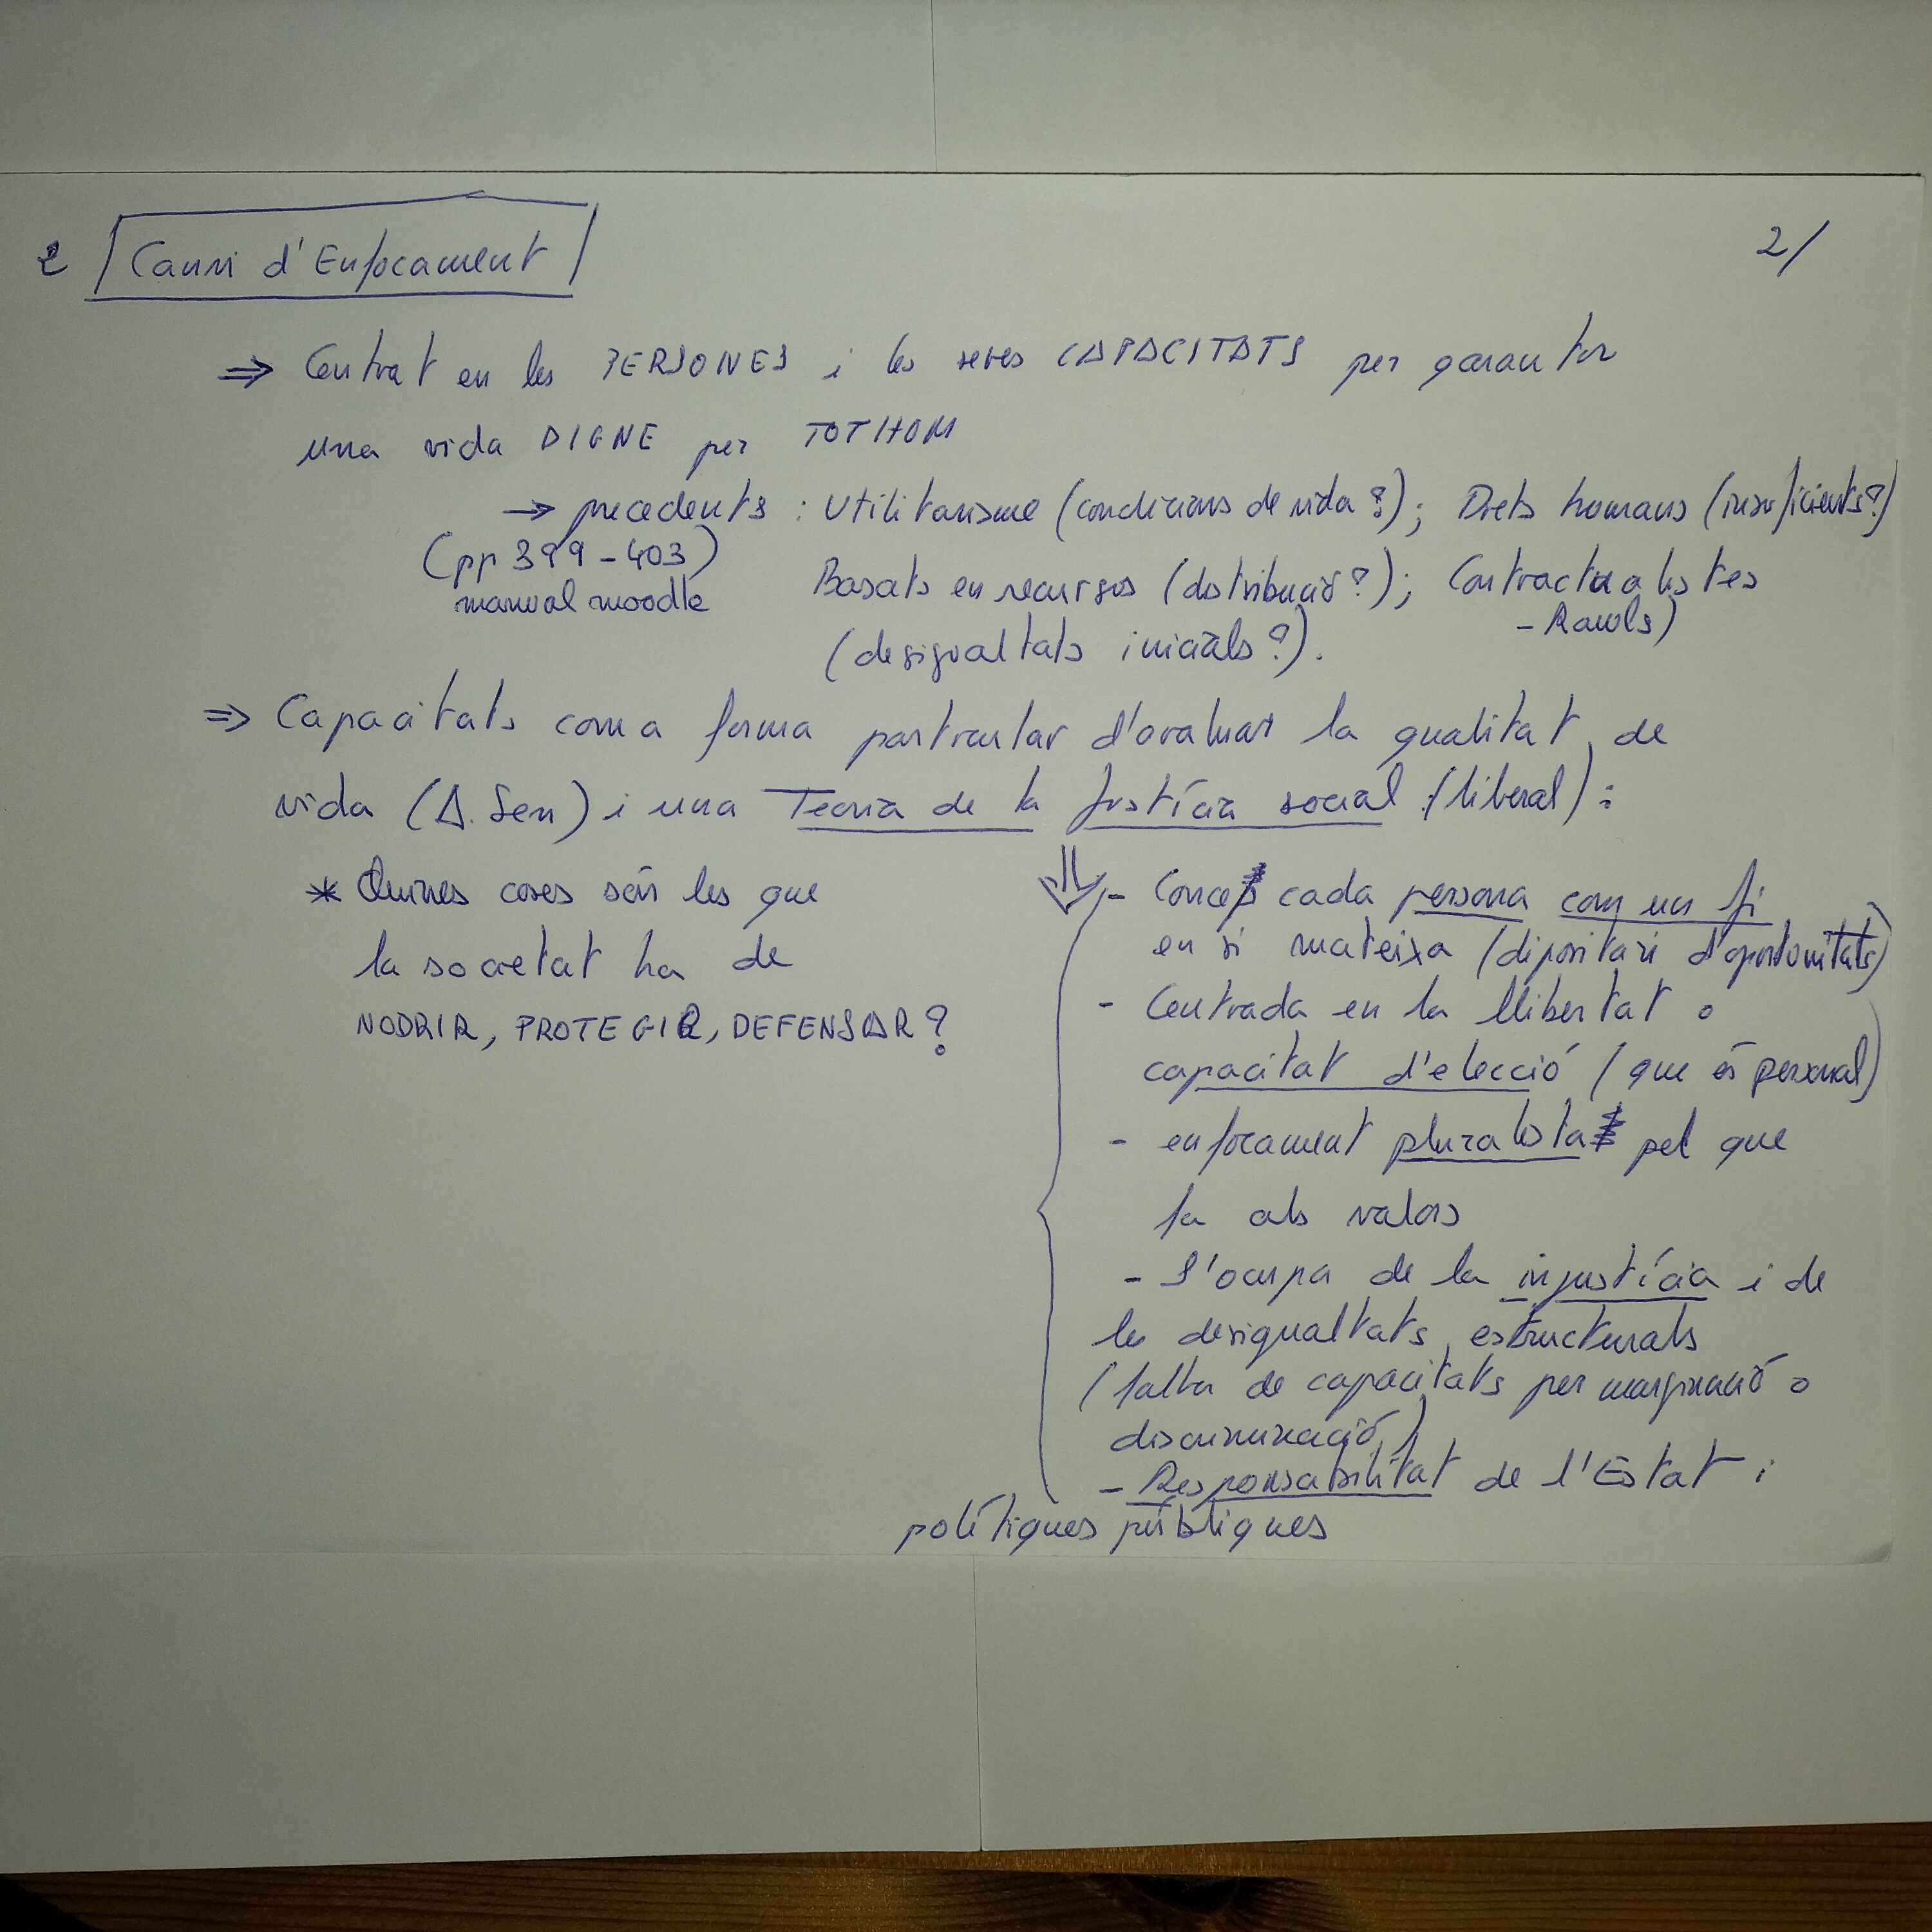 2 Canvi d'Enfocament
2/
⇒ Centrat en les PERSONES i les seves CAPACITATS per garantir
una vida DIGNE per TOTHOM
→ precedents : Utilitarisme (condicions de vida?); Drets humans (insuficients?)
(pp 399-403)
manual moodle
Basats en recursos (distribució?); Contractualistes
- Rawls)
(desigualtats inicials?).
⇒ Capacitats com a forma particular d'avaluar la qualitat de
vida (A. Sen) i una Teoria de la Justícia social (liberal):
* Quines coses són les que
la societat ha de
NODRIR, PROTEGIR, DEFENSAR?
⇓ - Concep cada persona com un fi
en si mateixa (dipositari d'oportunitats)
- Centrada en la llibertat o
capacitat d'elecció (que és personal)
- enfocament pluralista pel que
fa als valors
- S'ocupa de la injustícia i de
les desigualtats estructurals
(falta de capacitats per marginació o
discriminació)
- Responsabilitat de l'Estat i
polítiques públiques